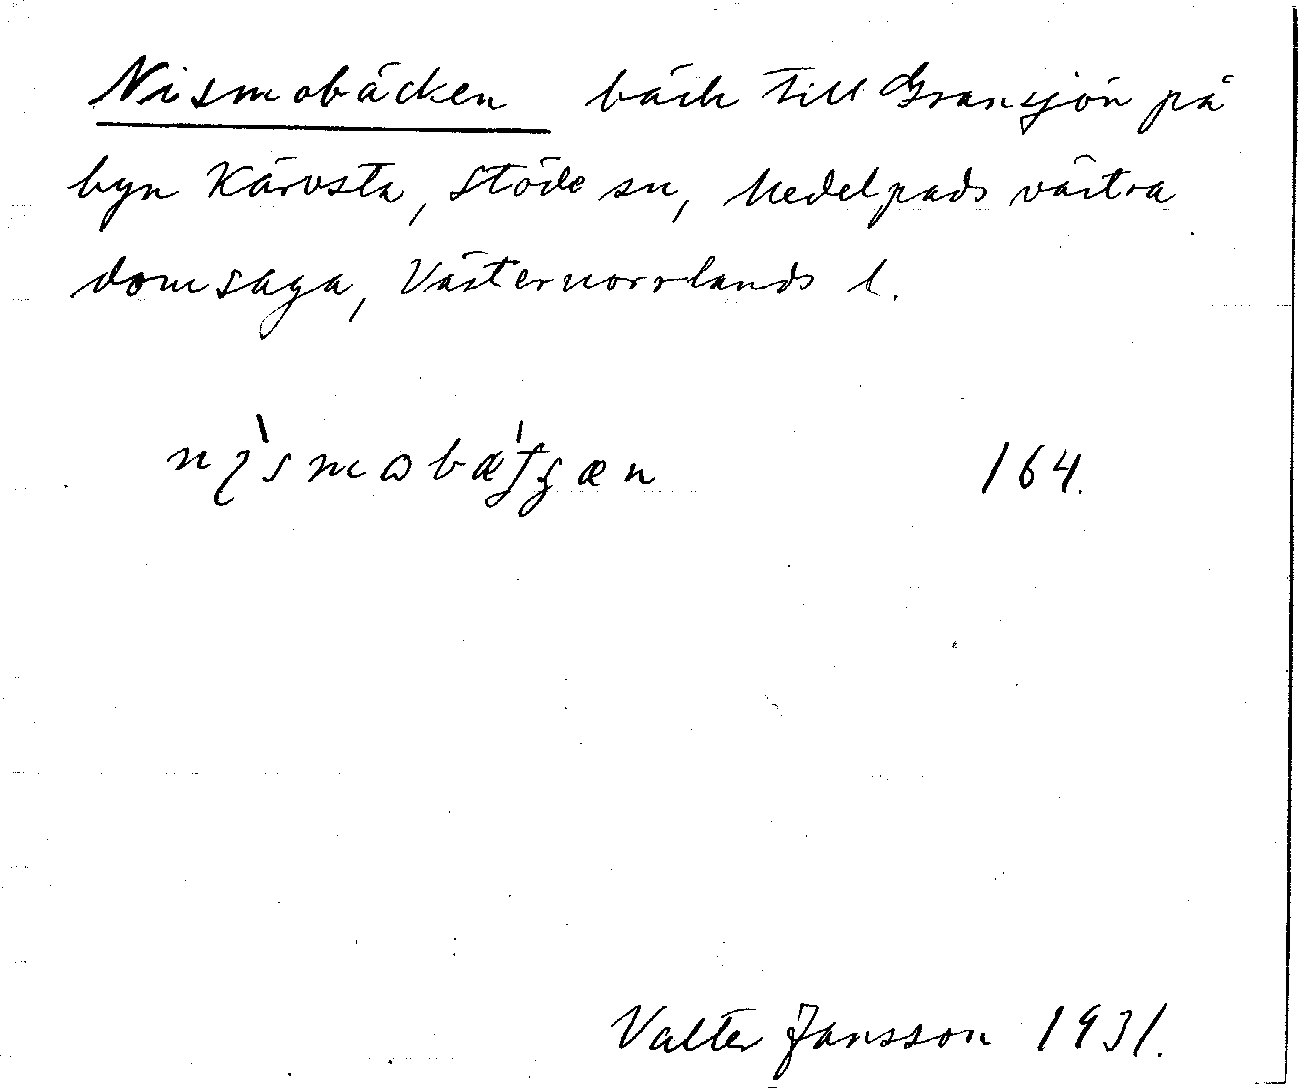 Nismobäcken bäck till Gransjön på
byn Kärvsta, Stöde sn, Medelpads västra
domsaga, Västernorrlands l.
164.
Valter Jansson 1931.